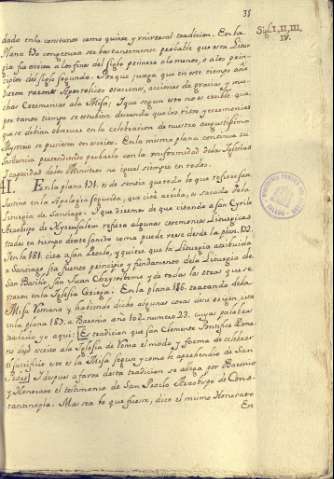 35
Sigl. I, II, III,
IV.
dada en la conturas como quiere y universal tradicion. En la
Plana 170 congetura ser bastantemente probable que esta Litur
gia fue escrita a los fines del Siglo primero a lo menos, o a los prin
cipios del siglo segundo. Porque juzga que en este tiempo añ
varon Apostolico oraciones, acciones de gracias y mu
chas Ceremonias a la Misa; I que segun esto no es creible que
por tanto tiempo se estubiese deseando que los ritos y ceremonias
que se debian observar en la celebracion de nuestro augustissimo
Mysterio se pusiesen en escrito. En la misma plana continua su
sentencia pretendiendo probarla con la uniformidad de las Iglesias
i capacidad de los Ministros no igual siempre en todos.
41. En la plana 171. es de sentir que todo lo que refiere San
Justino en la Apologia segunda, que cite arriba, es sacado de la
Liturgia de Santiago. I que diremos de que citando a San Cyrilo
Arzobispo de Hyerusalem refiera algunas ceremonias Liturgicas
usadas en tiempo deste santo como puede verse desde la plan. 172.
En la 181. cita a San Proclo, y quiere que la Liturgia atribuida
a Santiago sea fuente principio y fundamento de la Liturgia de
San Basilio, San Juan Chrysostomo y de todas las otras que se
usaron en la Iglesia Griega. En la plana 186. tratando de la
Misa Romana y haviendo dicho algunas cosas de su origen cita
en la plana 187. a Baronio año 102. numero 23. cuyas palabras
traslado yo aqui: Es tradicion que San Clemente Pontifice Roma
no dejo escrito a la Iglesia de Roma el modo y forma de celebrar
el sacrificio este es la Misa segun y como lo aprehendio de San
Pedro. I despues a favor de esta tradicion se alega por Baronio
y Honorato el testimonio de San Proclo Arzobispo de Cons
tantinopla. Mas sea lo que fuere, dice el mismo Honorato
En